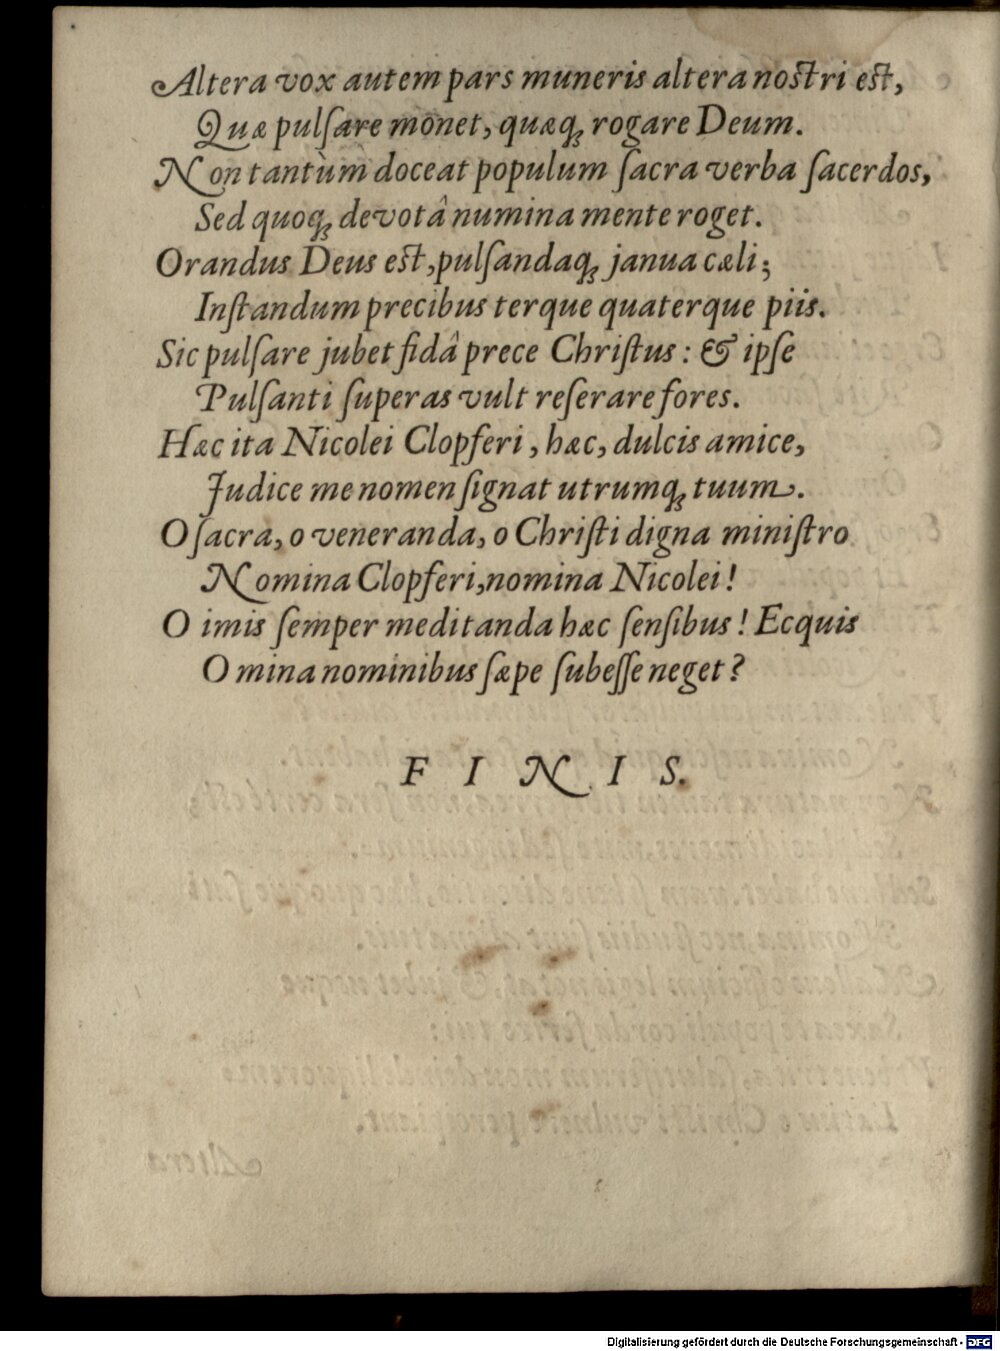 Altera vox autem pars muneris altera nostri est,
Quæ pulſare monet, quæq́; rogare Deum.
Non tantùm doceat populum ſacra verba ſacerdos,
Sed quoq́; devotâ numina mente roget.
Orandus Deus est, pulſandaq́; janua cæli;
Inſtandum precibus terque quaterque piis.
Sic pulſare jubet fidâ prece Chriſtus: & ipſe
Pulſanti ſuperas vult reſerare fores.
Hæc ita Nicolei Clopferi, hæc, dulcis amice,
Judice me nomen ſignat utrumq́; tuum.
O ſacra, o veneranda, o Chriſti digna miniſtro
Nomina Clopferi, nomina Nicolei!
O imis ſemper meditanda hæc ſenſibus! Ecquis
Omina nominibus ſæpe ſubeſſe neget?
F I N I S.
Digitalisierung gefördert durch die Deutsche Forschungsgemeinschaft - DFG